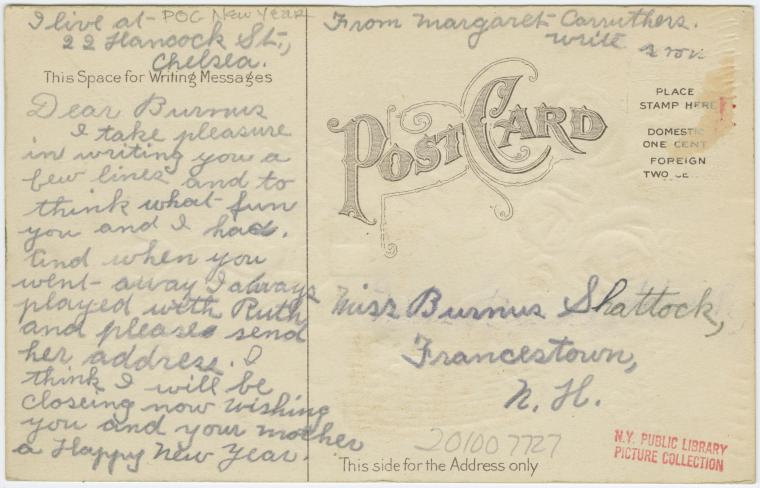 I live at- POG New Year
22 Hancock St.,
Chelsea.
This Space for Writing Messages
Dear Burnus
I take pleasure
in writing you a
few lines and to
think what fun
you and I had.
And when you
went away I always
played with Ruth
and please send
her address. I
think I will be
closeing now wishing
you and your mother
a Happy New Year.
From Margaret Carruthers.
write
POST CARD
PLACE
STAMP HERE
DOMESTIC
ONE CENT
FOREIGN
TWO
Miss Burnus Shattock,
Francestown,
N. H.
201007727
N.Y. PUBLIC LIBRARY
PICTURE COLLECTION
This side for the Address only